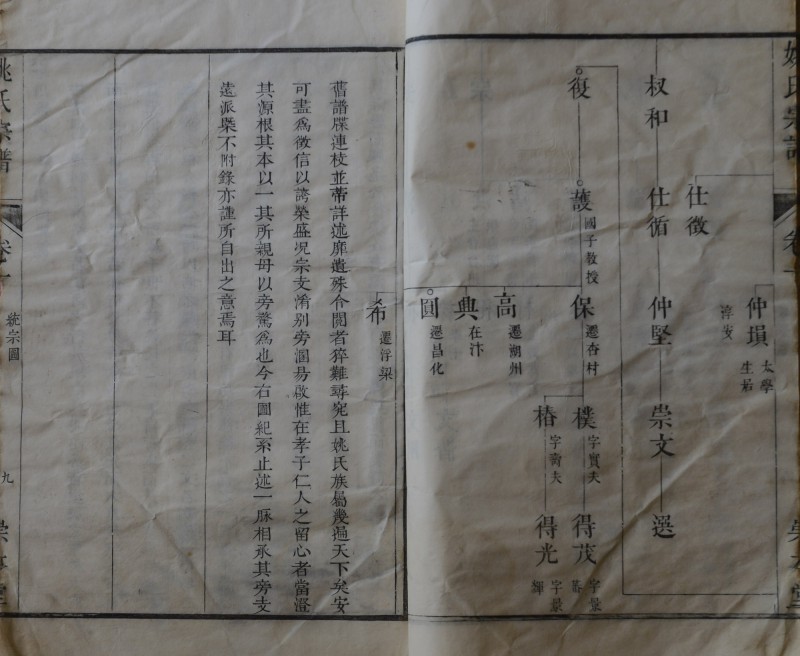 姚氏宗譜
卷一
仲塤
太學
生
淳安
仕徵
权和
仕循
仲堅
崇文
選
復
護
國子教授
保
遷杏村
樸
字實夫
得茂
字景
椿
字
夫
得光
字景
輝
高
遷湖州
典
在汴
圓
遷昌化
希
遷浮梁
舊譜牒連枝並蒂詳述靡遺殊令閱者猝難尋究且姚氏族屬幾遍天下矣安
可盡爲徵信以誇榮盛况宗支淆别旁溷易啟惟在孝子仁人之留心者當澄
其源根其本以一其所親毋以旁驚爲也今右圖紀系止述一脉相承其旁支
遠派槩不附錄亦謹所自出之意焉耳
姚氏宗譜
卷一
統宗圖
九
崇本堂